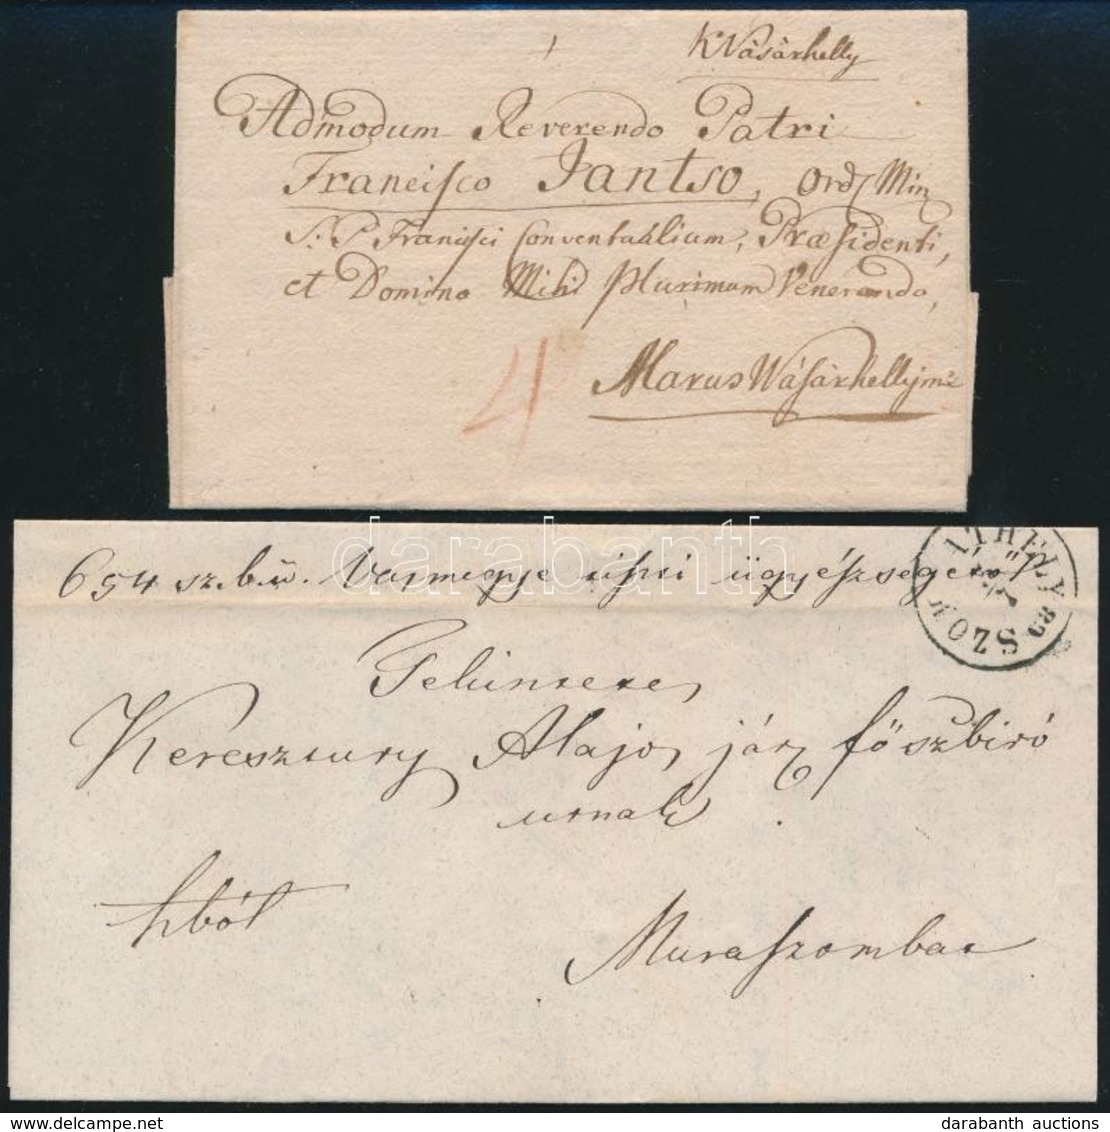 KVásárhelly
Admodum Reverendo Patri
Francisco Jantso, Ord. Min
S. P. Francisci Conventualium, Præsidenti,
et Domino Mihi Plurimum Venerando,
4
Marus Vásárhellyini
darabanth
654 sz. b.ü. Vasmegye tiszti ügyészségétől
SZOMBATHELY
Tekintetes
Keresztury Alajos jár. főszbiró
urnak
hból
Muraszombat
delcampe.net
darabanth auctions